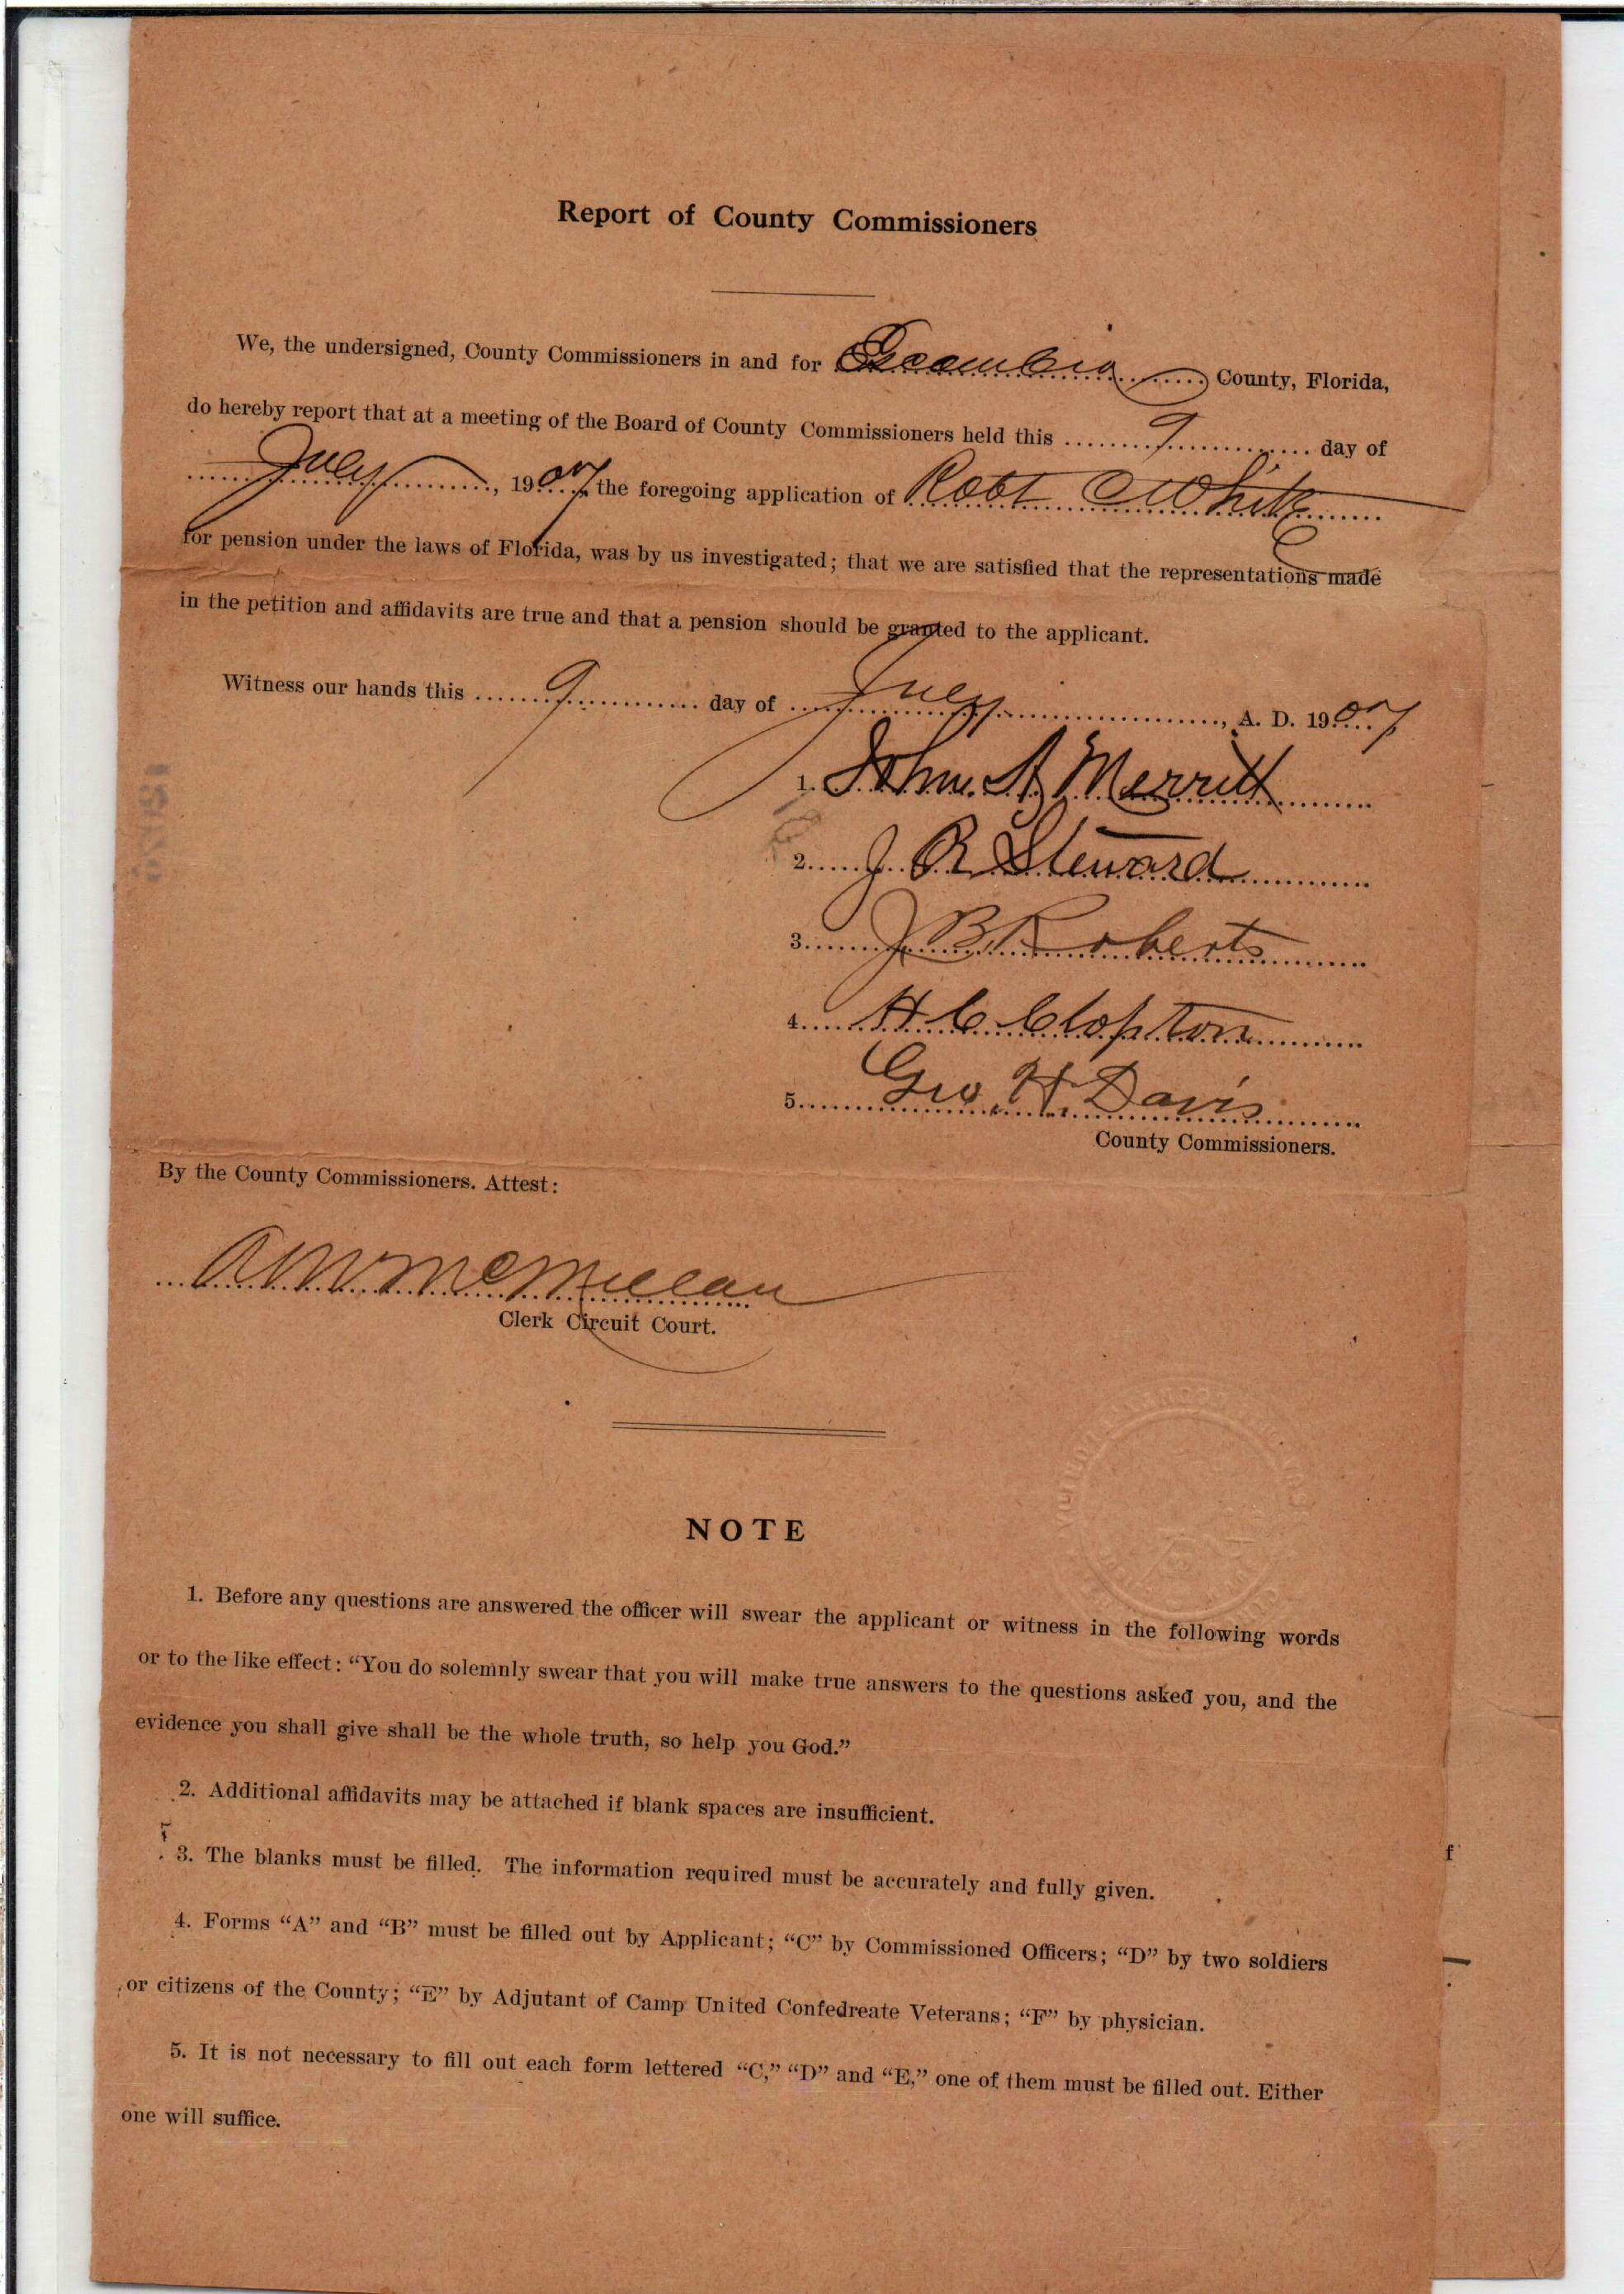 Report of County Commissioners
We, the undersigned, County Commissioners in and for Escambia County, Florida,
do hereby report that at a meeting of the Board of County Commissioners held this 9 day of
July, 1907 the foregoing application of Robt C White
for pension under the laws of Florida, was by us investigated; that we are satisfied that the representations made
in the petition and affidavits are true and that a pension should be granted to the applicant.
Witness our hands this 9 day of July, A. D. 1907
1. John A Merritt
2. J R Steward
3. J B Roberts
4. H C Clopton
5. Geo H Davis
County Commissioners.
By the County Commissioners. Attest:
A M McMillan
Clerk Circuit Court.
NOTE
1. Before any questions are answered the officer will swear the applicant or witness in the following words
or to the like effect: “You do solemnly swear that you will make true answers to the questions asked you, and the
evidence you shall give shall be the whole truth, so help you God.”
2. Additional affidavits may be attached if blank spaces are insufficient.
3. The blanks must be filled. The information required must be accurately and fully given.
4. Forms “A” and “B” must be filled out by Applicant; “C” by Commissioned Officers; “D” by two soldiers
or citizens of the County; “E” by Adjutant of Camp United Confedreate Veterans; “F” by physician.
5. It is not necessary to fill out each form lettered “C,” “D” and “E,” one of them must be filled out. Either
one will suffice.
f